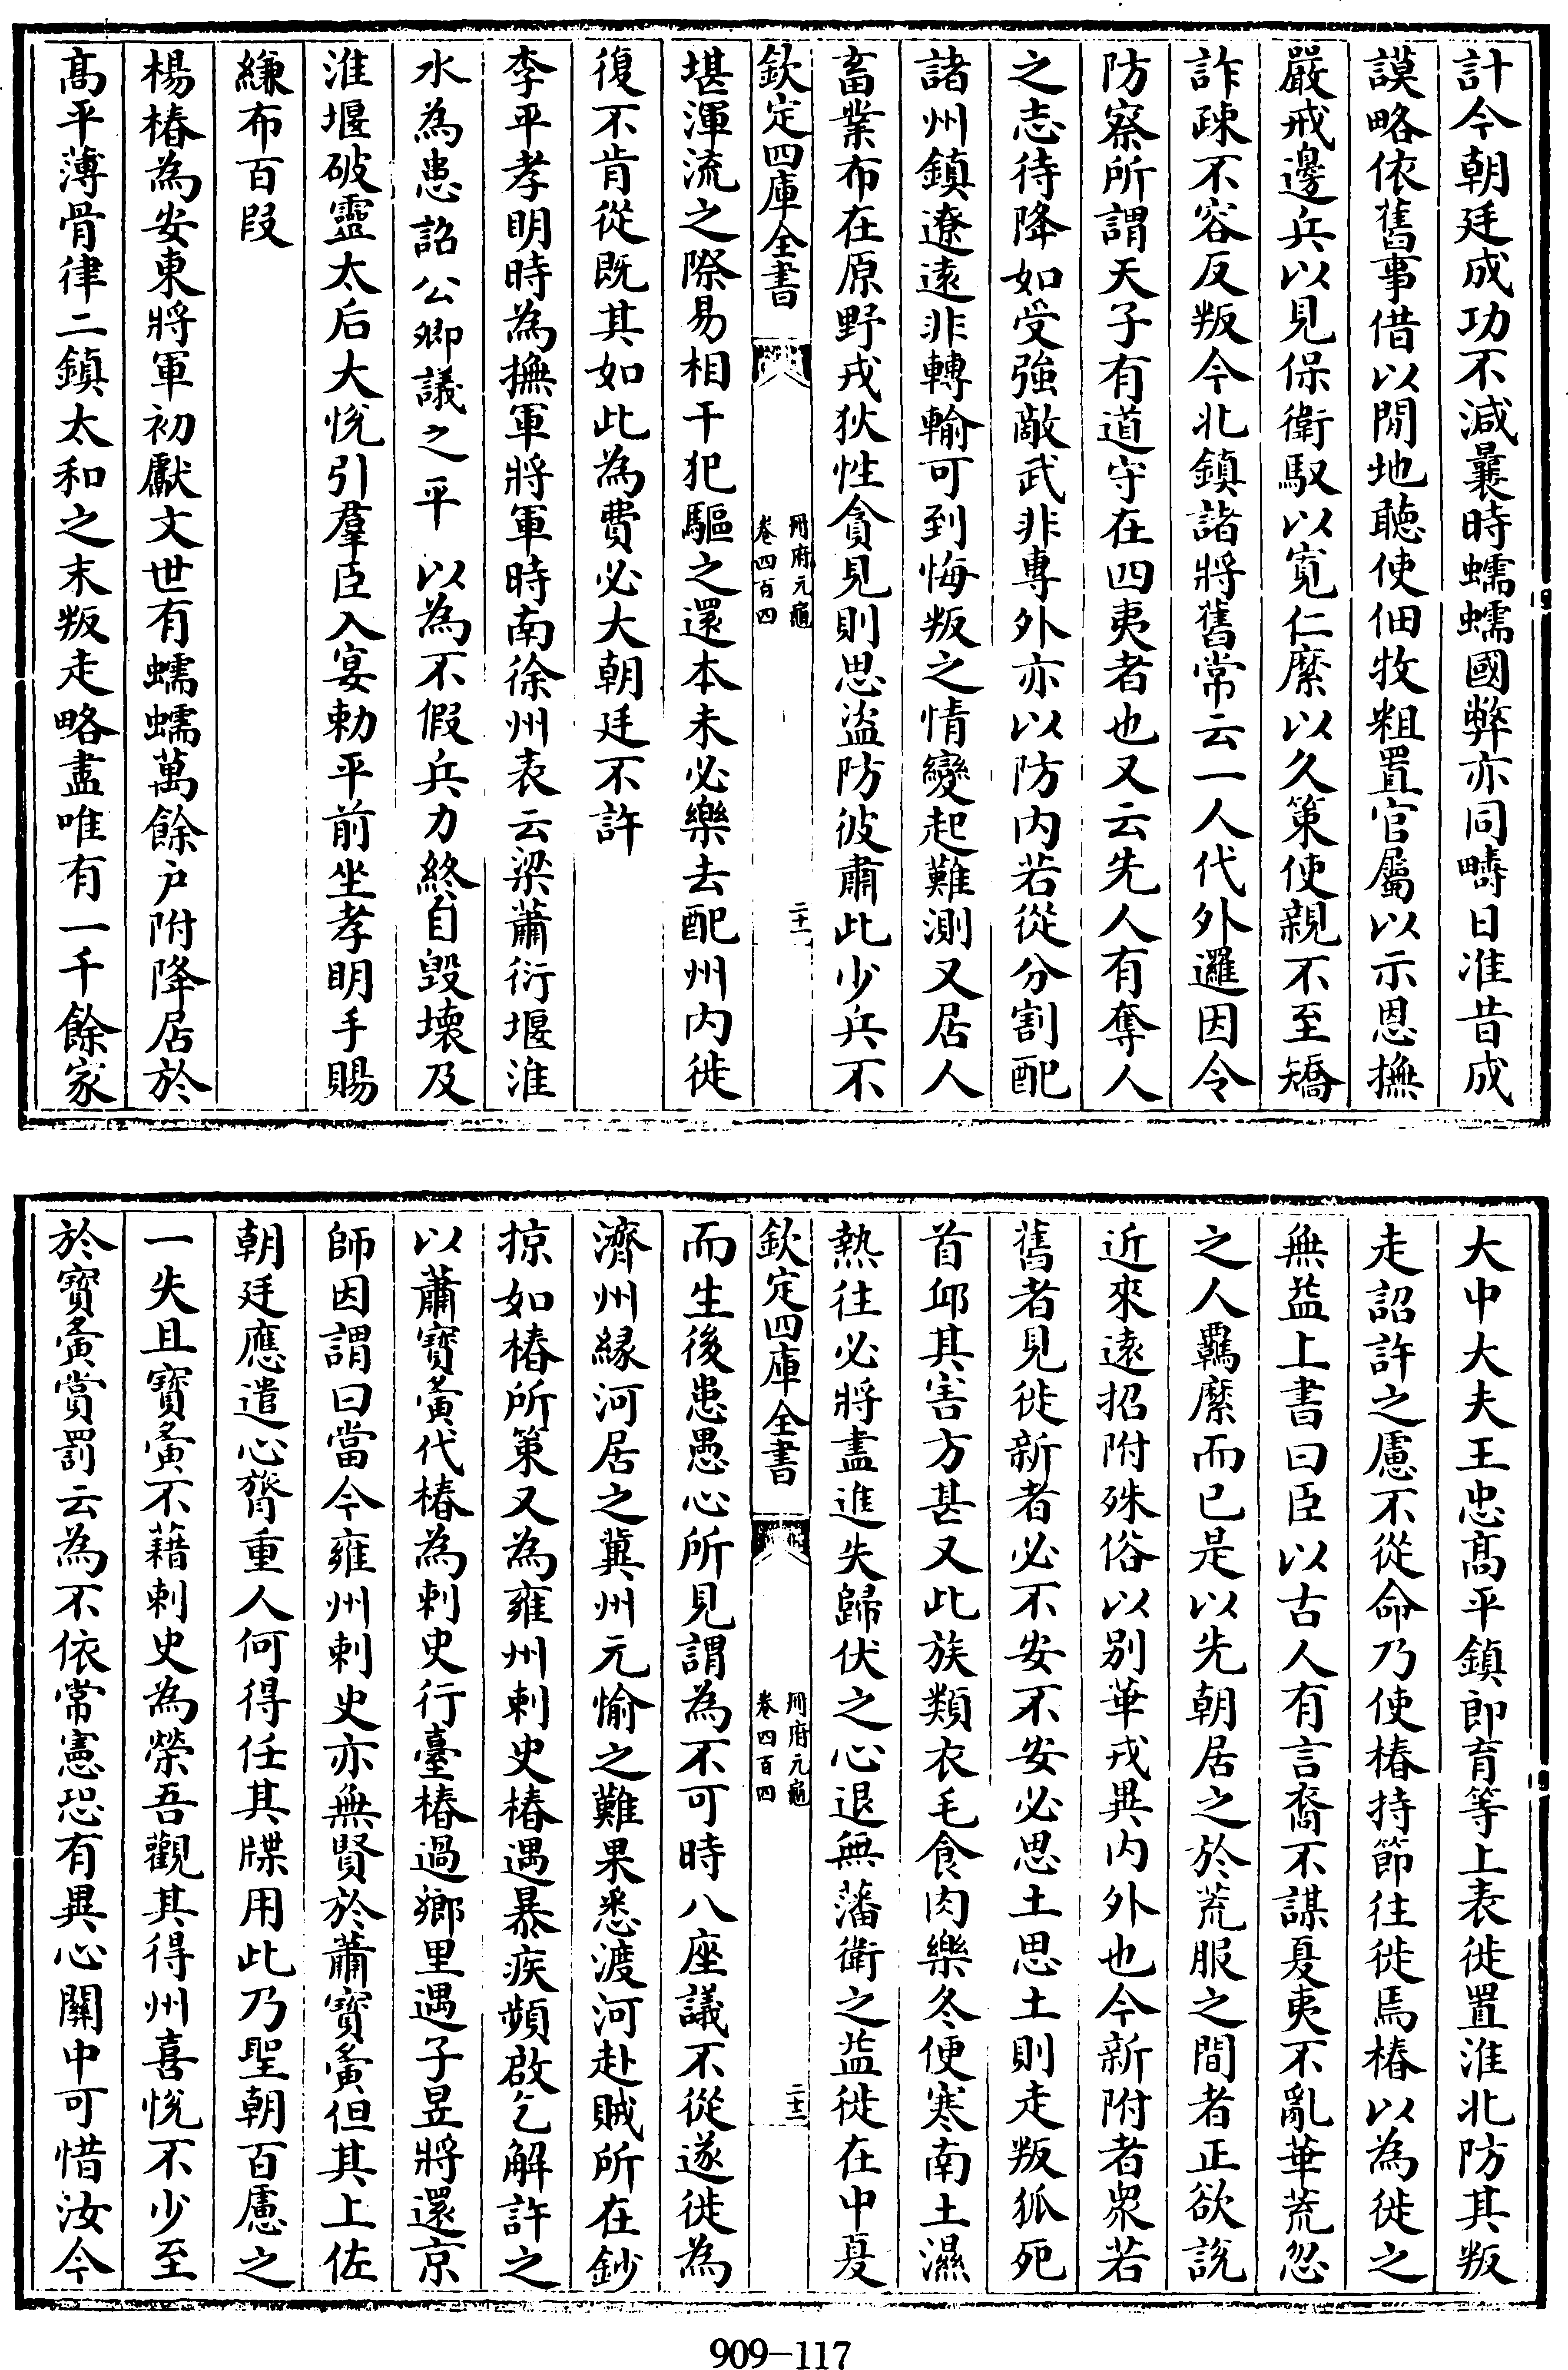 計今朝廷成功不減曩時蠕蠕國弊亦同疇日准昔成
謨略依舊事借以閒地聽使佃牧粗置官屬以示恩撫
嚴戒邊兵以見保衛馭以寛仁縻以久策使親不至矯
詐疎不容反叛今北鎮諸將舊常云一人代外邏因令
防察所謂天子有道守在四夷者也又云先人有奪人
之志待降如受強敵武非專外亦以防内若從分割配
諸州鎮遼逺非轉輸可到悔叛之情變起難測又居人
畜業布在原野戎狄性貪見則思盜防彼肅此少兵不
欽定四庫全書
冊府元龜
卷四百四
二十一
堪渾流之際易相干犯驅之還本未必樂去配州内徙
復不肯從既其如此為費必大朝廷不許
李平孝明時為撫軍將軍時南徐州表云梁蕭衍堰淮
水為患詔公卿議之平 以為不假兵力終自毀壞及
淮堰破靈太后大悅引羣臣入宴勅平前坐孝明手賜
縑布百段
楊椿為安東將軍初獻文世有蠕蠕萬餘户附降居於
髙平薄骨律二鎮太和之末叛走略盡唯有一千餘家
大中大夫王忠髙平鎮即育等上表徙置淮北防其叛
走詔許之慮不從命乃使椿持節往徙焉椿以為徙之
無益上書曰臣以古人有言裔不謀夏夷不亂華荒忽
之人羈縻而已是以先朝居之於荒服之間者正欲説
近來遠招附殊俗以别華戎異内外也今新附者衆若
舊者見徙新者必不安不安必思土思土則走叛狐死
首邱其害方甚又此族類衣毛食肉樂冬便寒南土濕
熱往必將盡進失歸伏之心退無藩衛之益徙在中夏
欽定四庫全書
冊府元龜
卷四百四
二十二
而生後患愚心所見謂為不可時八座議不從遂徙為
濟州縁河居之冀州元愉之難果悉渡河赴賊所在鈔
掠如椿所策又為雍州刺史椿遇暴疾頻啟乞解許之
以蕭寳夤代椿為刺史行臺椿過鄉里遇子昱將還京
師因謂曰當今雍州刺史亦無賢於蕭寳夤但其上佐
朝廷應遣心膂重人何得任其牒用此乃聖朝百慮之
一失且寳夤不藉刺史為榮吾觀其得州喜悅不少至
於寳夤賞罰云為不依常憲恐有異心關中可惜汝今
909-117